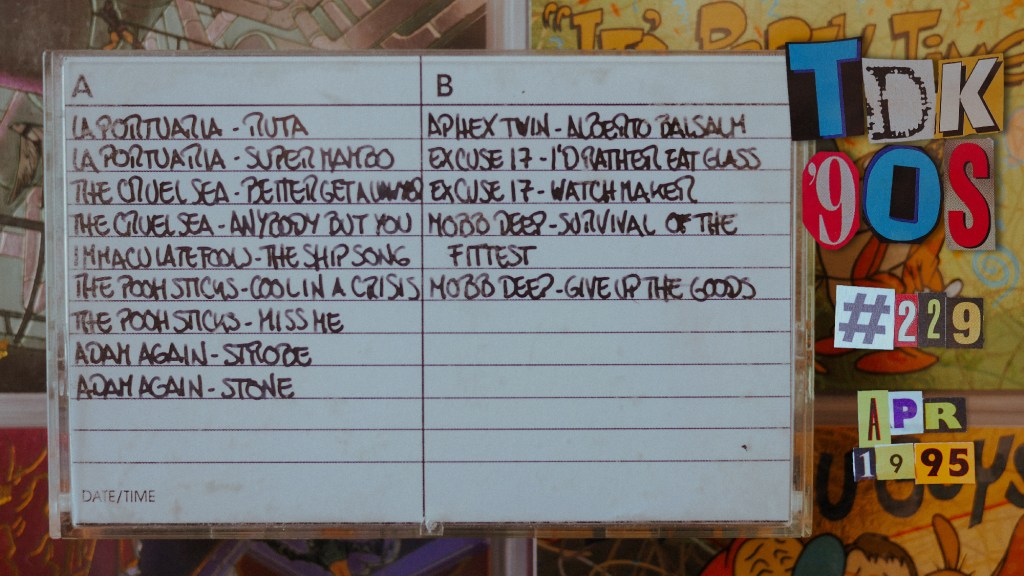 A
LA PORTUARIA - RUTA
LA PORTUARIA - SUPER MAMBO
THE CRUEL SEA - BETTER GET A LAWYER
THE CRUEL SEA - ANYBODY BUT YOU
IMMACULATE FOOLS - THE SHIP SONG
THE POOH STICKS - COOL IN A CRISIS
THE POOH STICKS - MISS ME
ADAM AGAIN - STROBE
ADAM AGAIN - STONE
DATE/TIME
B
APHEX TWIN - ALBERTO BALSALM
EXCUSE 17 - I'D RATHER EAT GLASS
EXCUSE 17 - WATCHMAKER
MOBB DEEP - SURVIVAL OF THE
FITTEST
MOBB DEEP - GIVE UP THE GOODS
TDK
'90S
#229
APR
1995